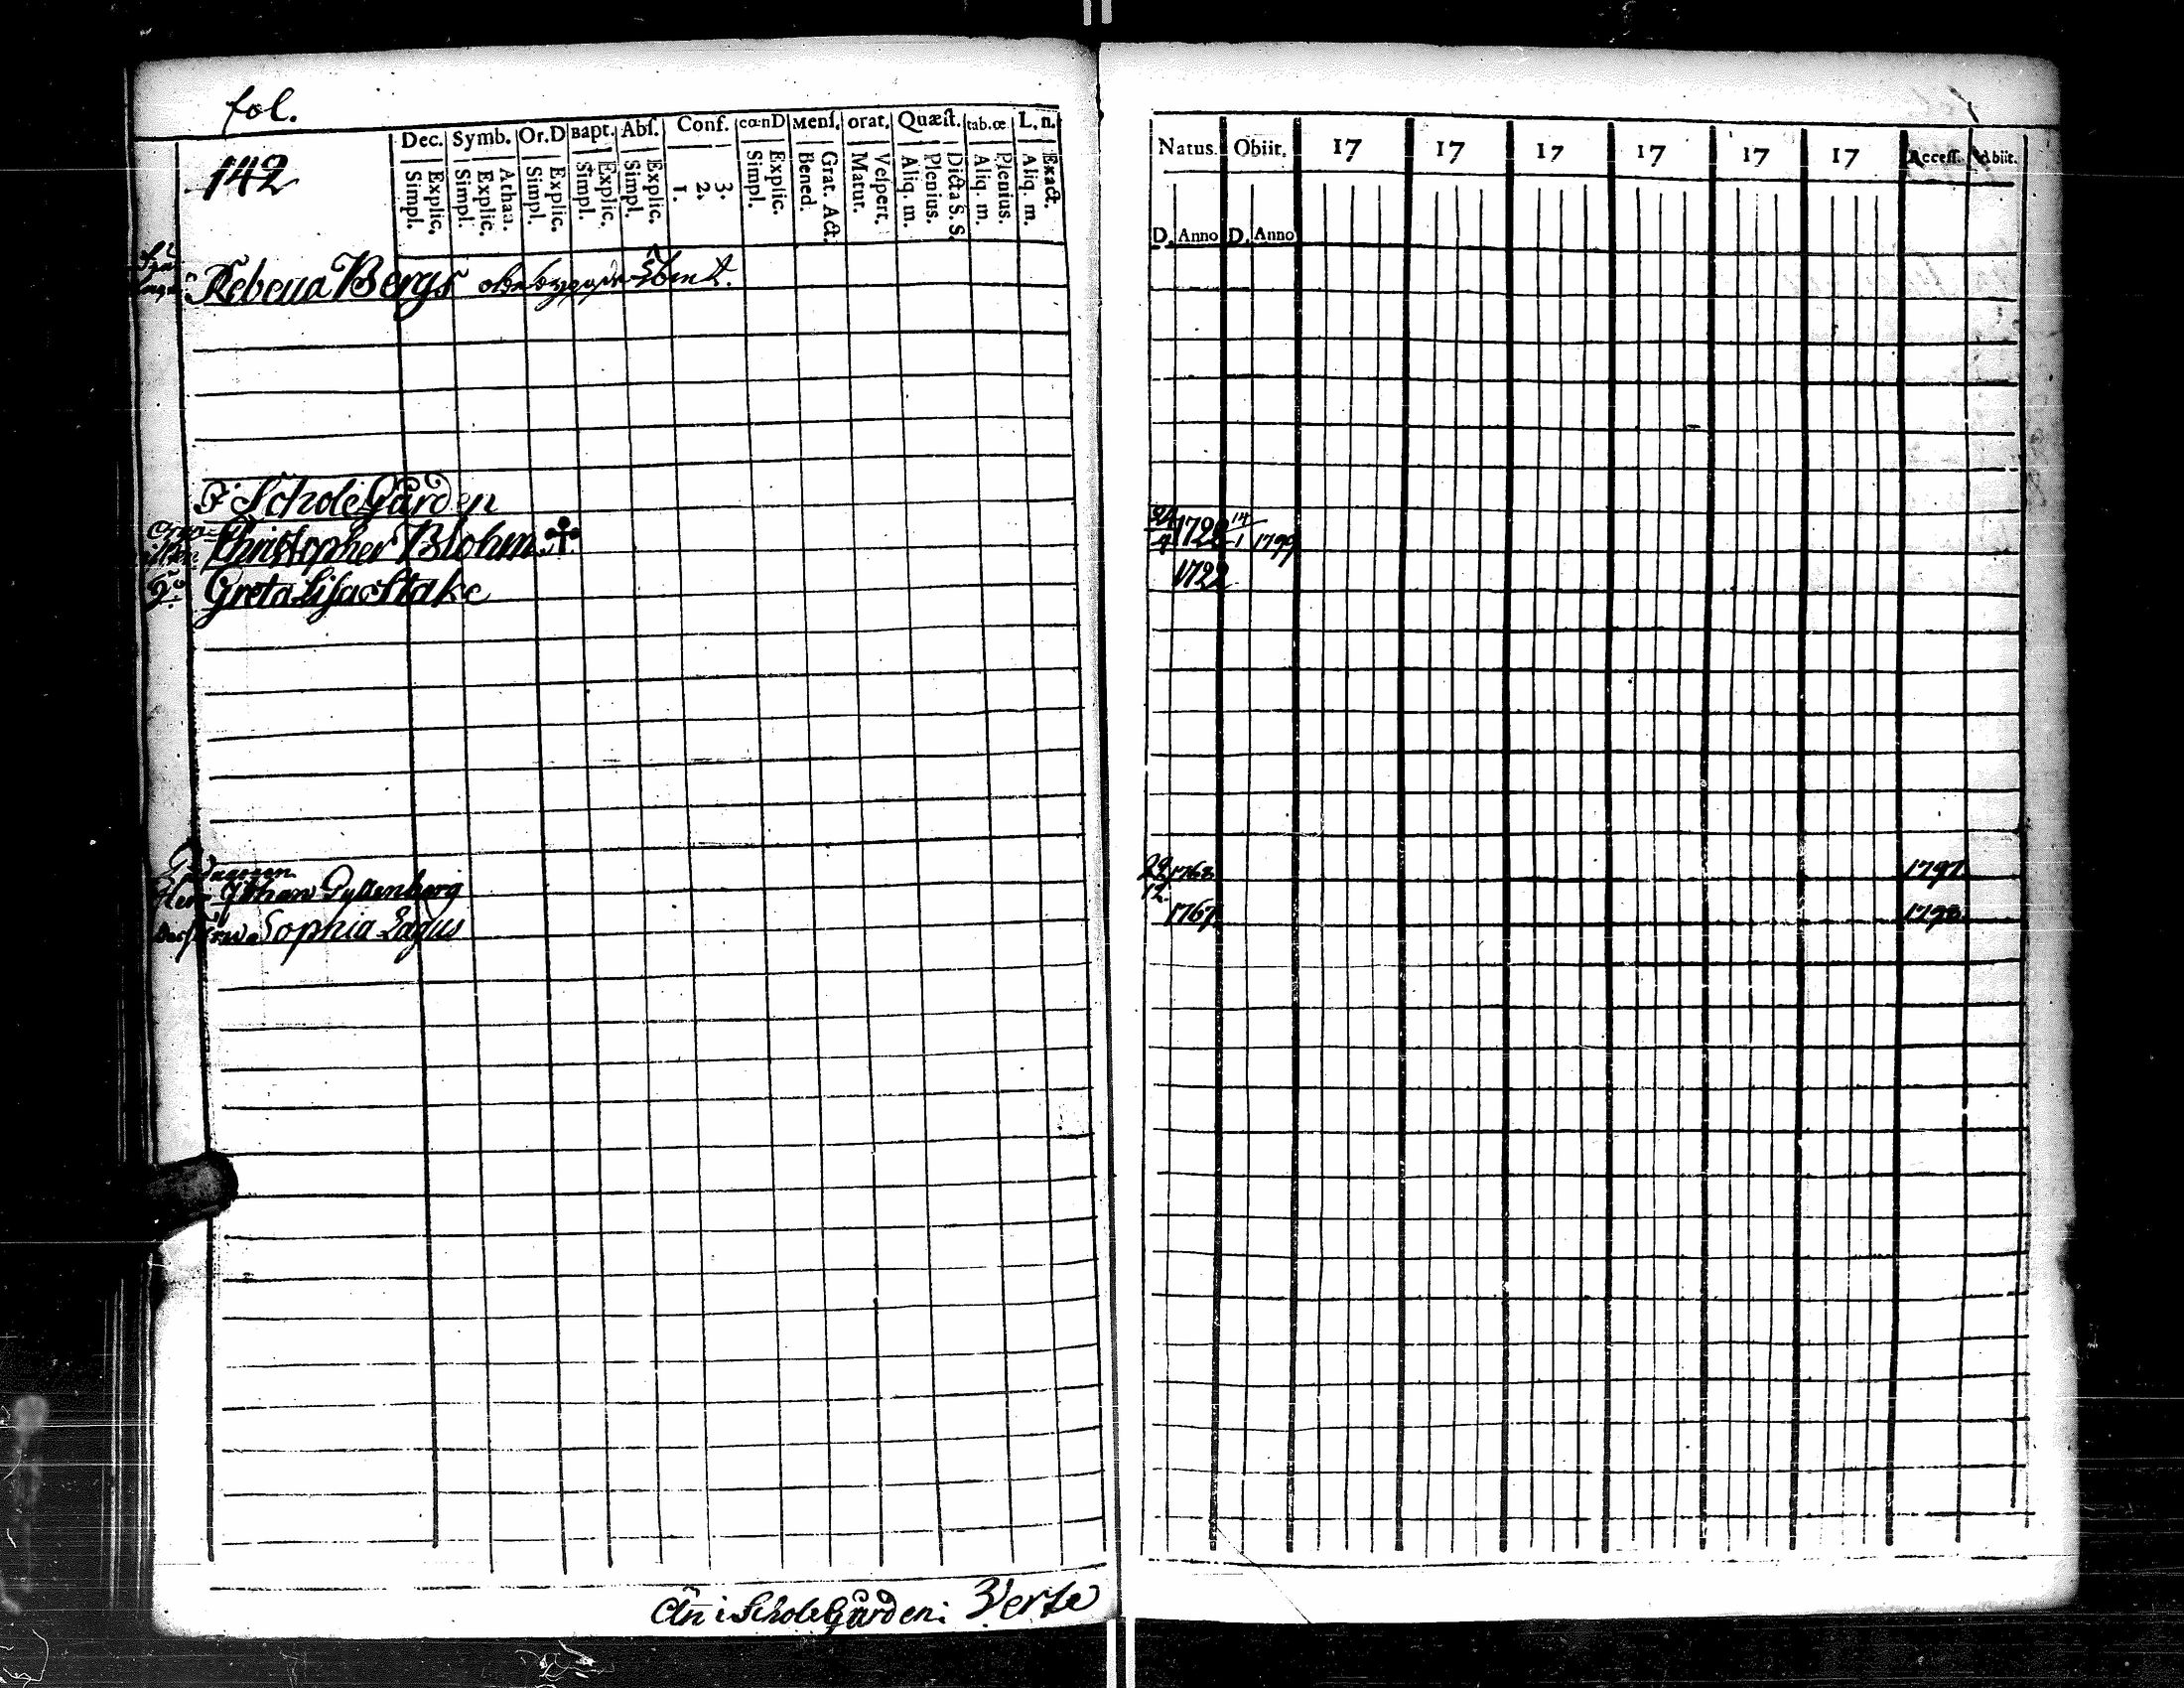 fol.
142
Dec. Symb. Or.D Bapt. Abſ. Conf. cœnD Menſ. orat. Quæſt. tab.œ L.n.
Simpl. Explic. Simpl. Explic. Athan. Simpl. Explic. Simpl. Explic. Simpl. Explic. 1. 2. 3. Simpl. Explic. Bened. Grat. Act. Matut. Veſpert. Aliq. m. Plenius. Dicta S. S. Aliq. m. Plenius. Aliq. m. Exact.
Rebecca Bergs obebyggde
I Schole Gården
Christopher Blohm
Greta Lisa Stake
Pedagogen
Herr Johan Gyllenberg
Sophia Lagus
Än i Schole Gården: Verte
Natus. Obiit. 17 17 17 17 17 17 Acceſſ. Abiit.
D. Anno D. Anno
24/4 1722 14/1 1799
1722
29/12 1763 1797
1767 1798